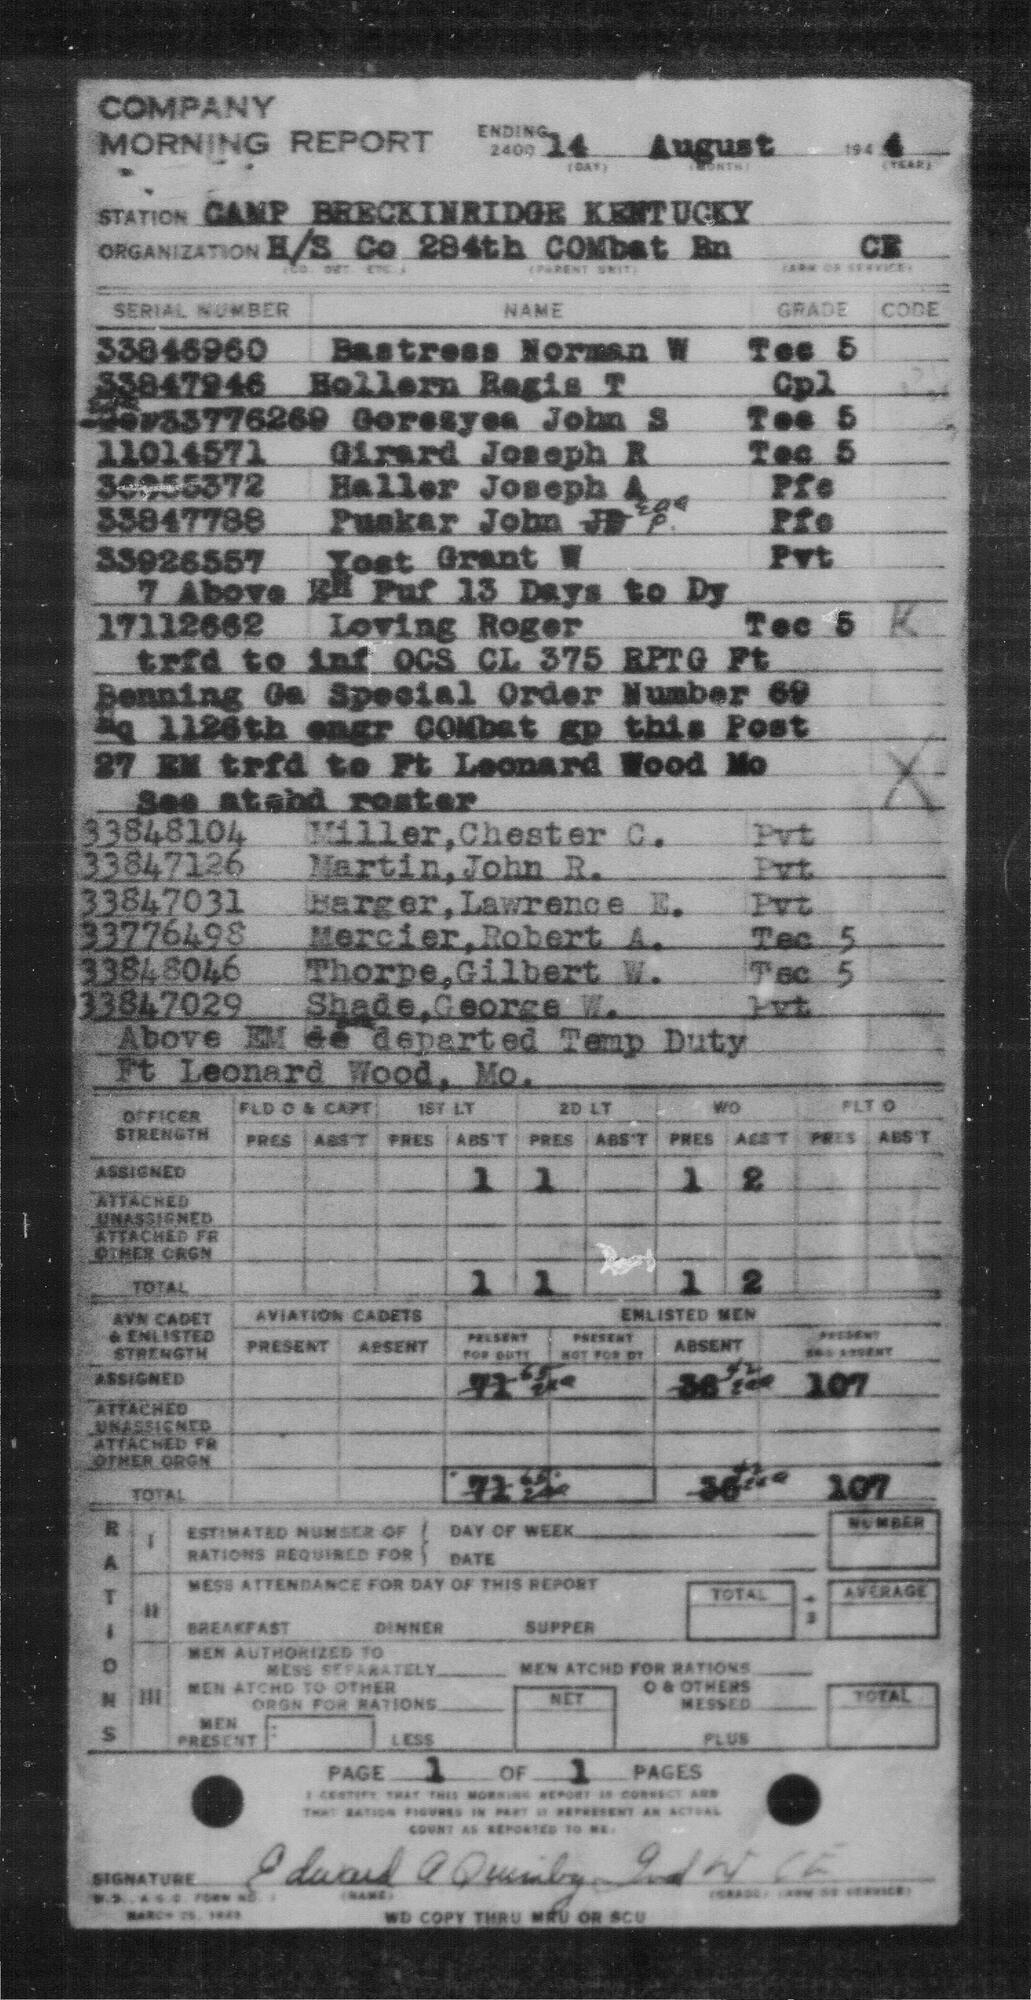 COMPANY
MORNING REPORT ENDING 2400 14 August 1944
(DAY) (MONTH) (YEAR)
STATION CAMP BRECKINRIDGE KENTUCKY
ORGANIZATION H/S Co 284th COMbat Bn CE
(CO. DET. ETC.) (PARENT UNIT) (ARM OR SERVICE)
SERIAL NUMBER NAME GRADE CODE
33846960 Bastress Norman W Tec 5
33847946 Hollern Regis T Cpl
33776269 Goreszyea John S Tec 5
11014571 Girard Joseph R Tec 5
372 Haller Joseph A Pfc
33847788 Puskar John P. Pfc
33926557 Yost Grant W Pvt
7 Above EM Fuf 13 Days to Dy
17112662 Loving Roger Tec 5 K
trfd to inf OCS CL 375 RPTG Ft
Benning Ga Special Order Number 69
Hq 1126th engr COMbat gp this Post
27 EM trfd to Ft Leonard Wood Mo X
See atchd roster
33848104 Miller,Chester C. Pvt
33847126 Martin,John R. Pvt
33847031 Harger,Lawrence E. Pvt
33776498 Mercier,Robert A. Tec 5
33848046 Thorpe,Gilbert W. Tec 5
33847029 Shade,George W. Pvt
Above EM de departed Temp Duty
Ft Leonard Wood, Mo.
OFFICER STRENGTH FLD O & CAPT 1ST LT 2D LT WO FLT O
PRES ABS'T PRES ABS'T PRES ABS'T PRES ABS'T PRES ABS'T
ASSIGNED 1 1 1 2
ATTACHED UNASSIGNED
ATTACHED FR OTHER ORGN
TOTAL 1 1 1 2
AVN CADET & ENLISTED STRENGTH AVIATION CADETS ENLISTED MEN
PRESENT ABSENT PRESENT FOR DUTY PRESENT NOT FOR DY ABSENT PRESENT AND ABSENT
ASSIGNED 71 65 36 42 107
ATTACHED UNASSIGNED
ATTACHED FR OTHER ORGN
TOTAL 71 65 36 42 107
RATIONS
I ESTIMATED NUMBER OF RATIONS REQUIRED FOR DAY OF WEEK DATE NUMBER
II MESS ATTENDANCE FOR DAY OF THIS REPORT TOTAL ÷ 3 AVERAGE
BREAKFAST DINNER SUPPER
III MEN AUTHORIZED TO MESS SEPARATELY MEN ATCHD FOR RATIONS
MEN ATCHD TO OTHER ORGN FOR RATIONS NET O & OTHERS MESSED TOTAL
MEN PRESENT LESS PLUS
PAGE 1 OF 1 PAGES
I CERTIFY THAT THIS MORNING REPORT IS CORRECT AND
THAT RATION FIGURES IN PART II REPRESENT AN ACTUAL
COUNT AS REPORTED TO ME.
SIGNATURE Edward A Quimby CE
(NAME) (GRADE) (ARM OR SERVICE)
W.D., A.G.O. FORM NO. 1
MARCH 25, 1943
WD COPY THRU MRU OR SCU